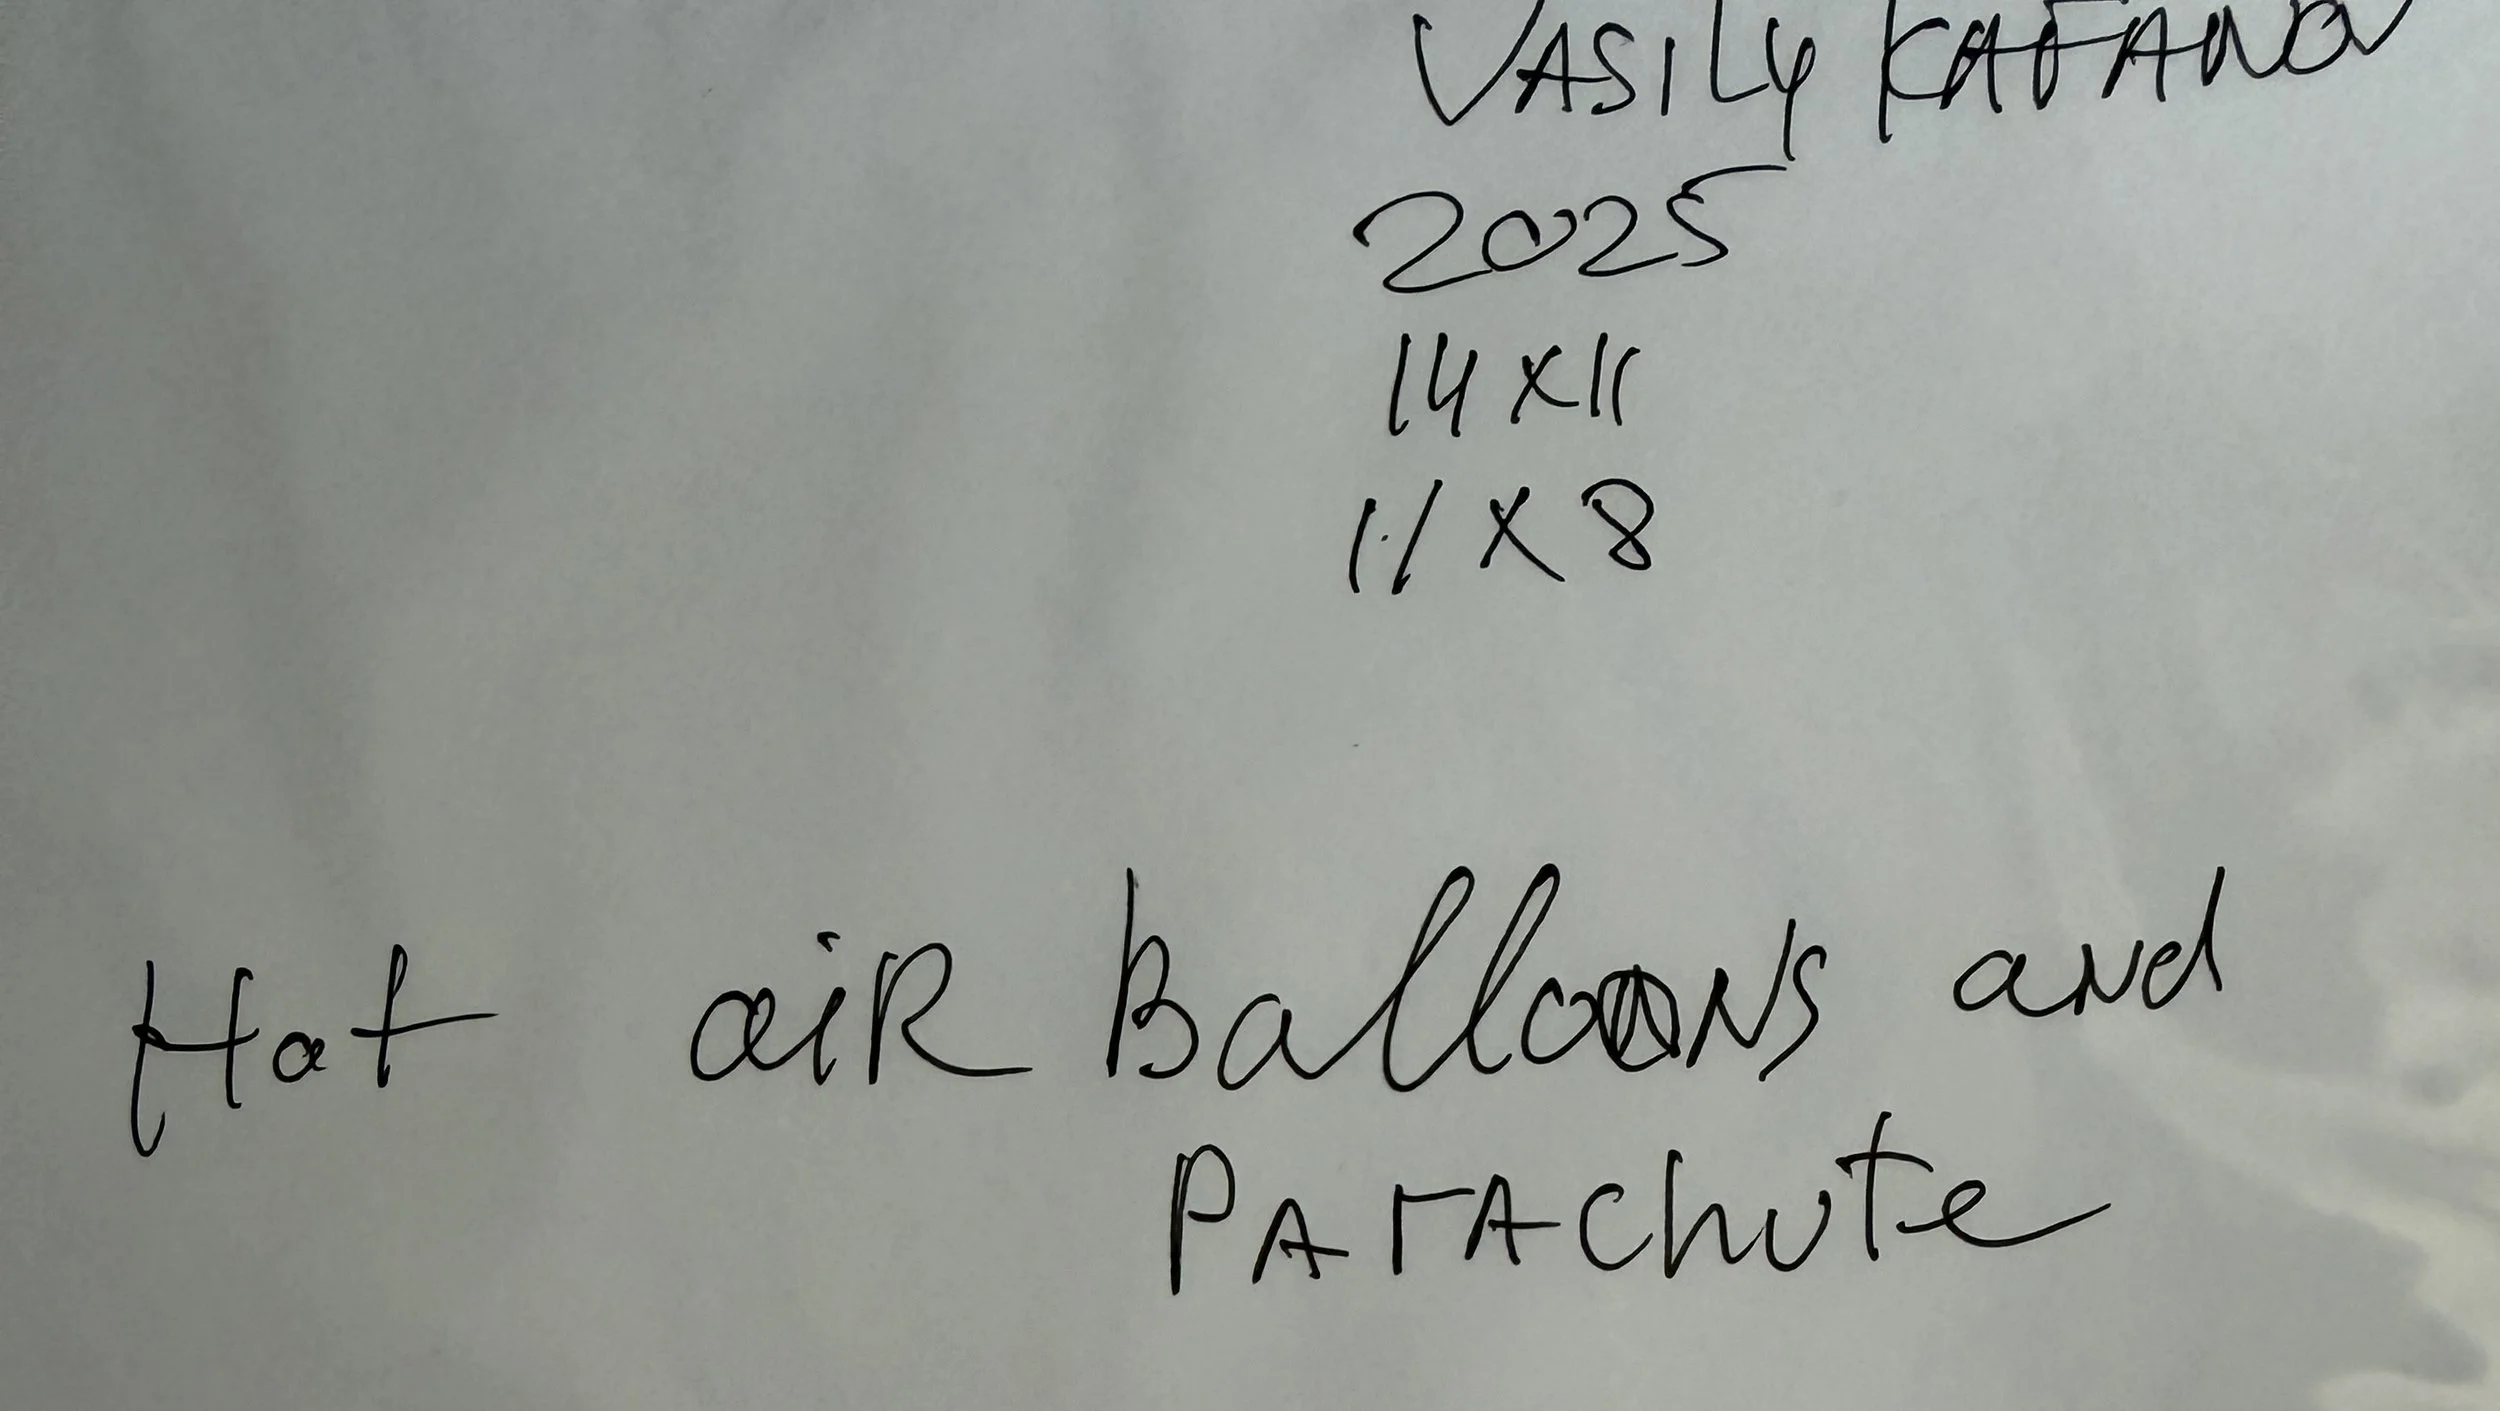 VASILY KAFANOV
2025
14 x 11
11 x 8
Hot aiR Balloons and
PArAchute